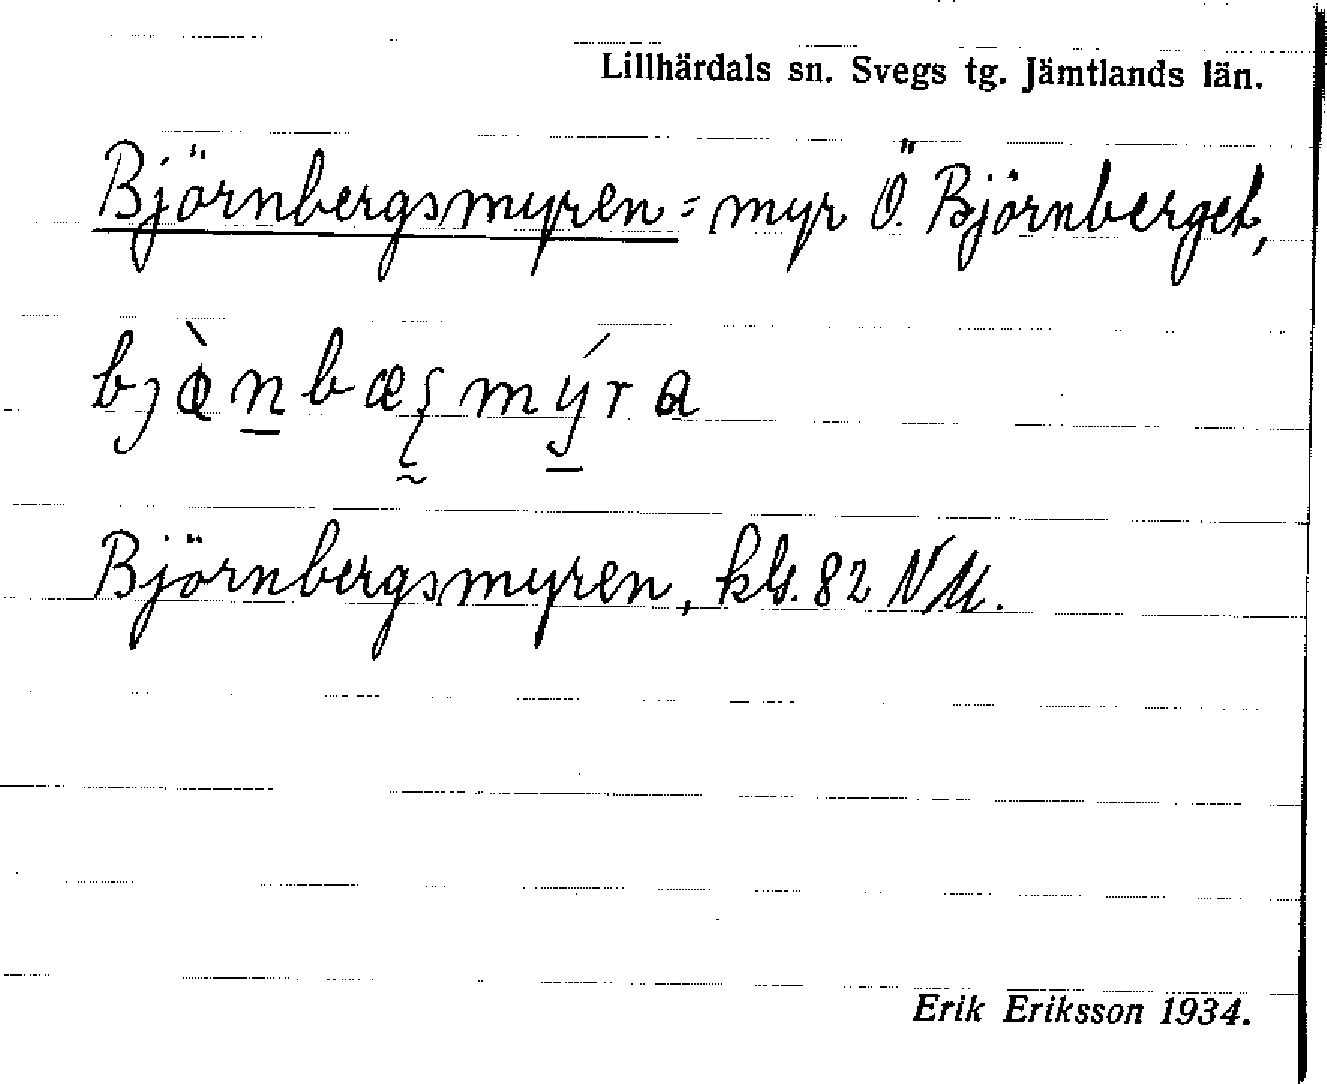 Lillhärdals sn. Svegs tg. Jämtlands län.
Björnbergsmyren = myr Ö. Björnberget,
Björnbergsmyren, kbl. 82 NM.
Erik Eriksson 1934.